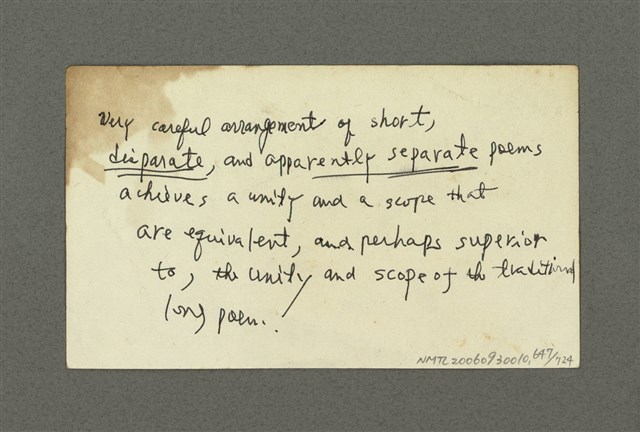 Very careful arrangement of short,
disparate, and apparently separate poems
achieves a unity and a scope that
are equivalent, and perhaps superior
to, the unity and scope of the traditional
long poem.
NMTL20060930010,647/724